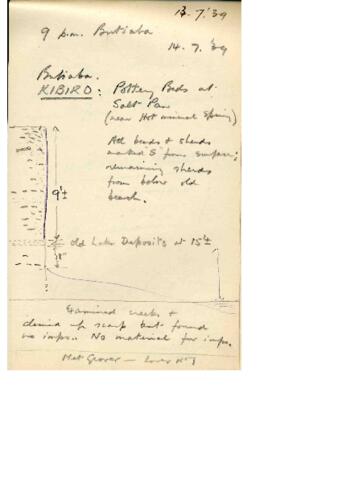 13.7.'39
9 p.m. Butiaba
14.7.'39
Butiaba.
KIBIRO: Pottery Beds at
Salt Pan
(near Hot mineral Spring)
All beads & sherds
marked S from surface;
remaining sherds
from below old
beach.
9'±
old Lake Deposits at 15'±
18"
Examined creeks &
climbed up scarp but found
no imps. No material for imps.
Met Grover —